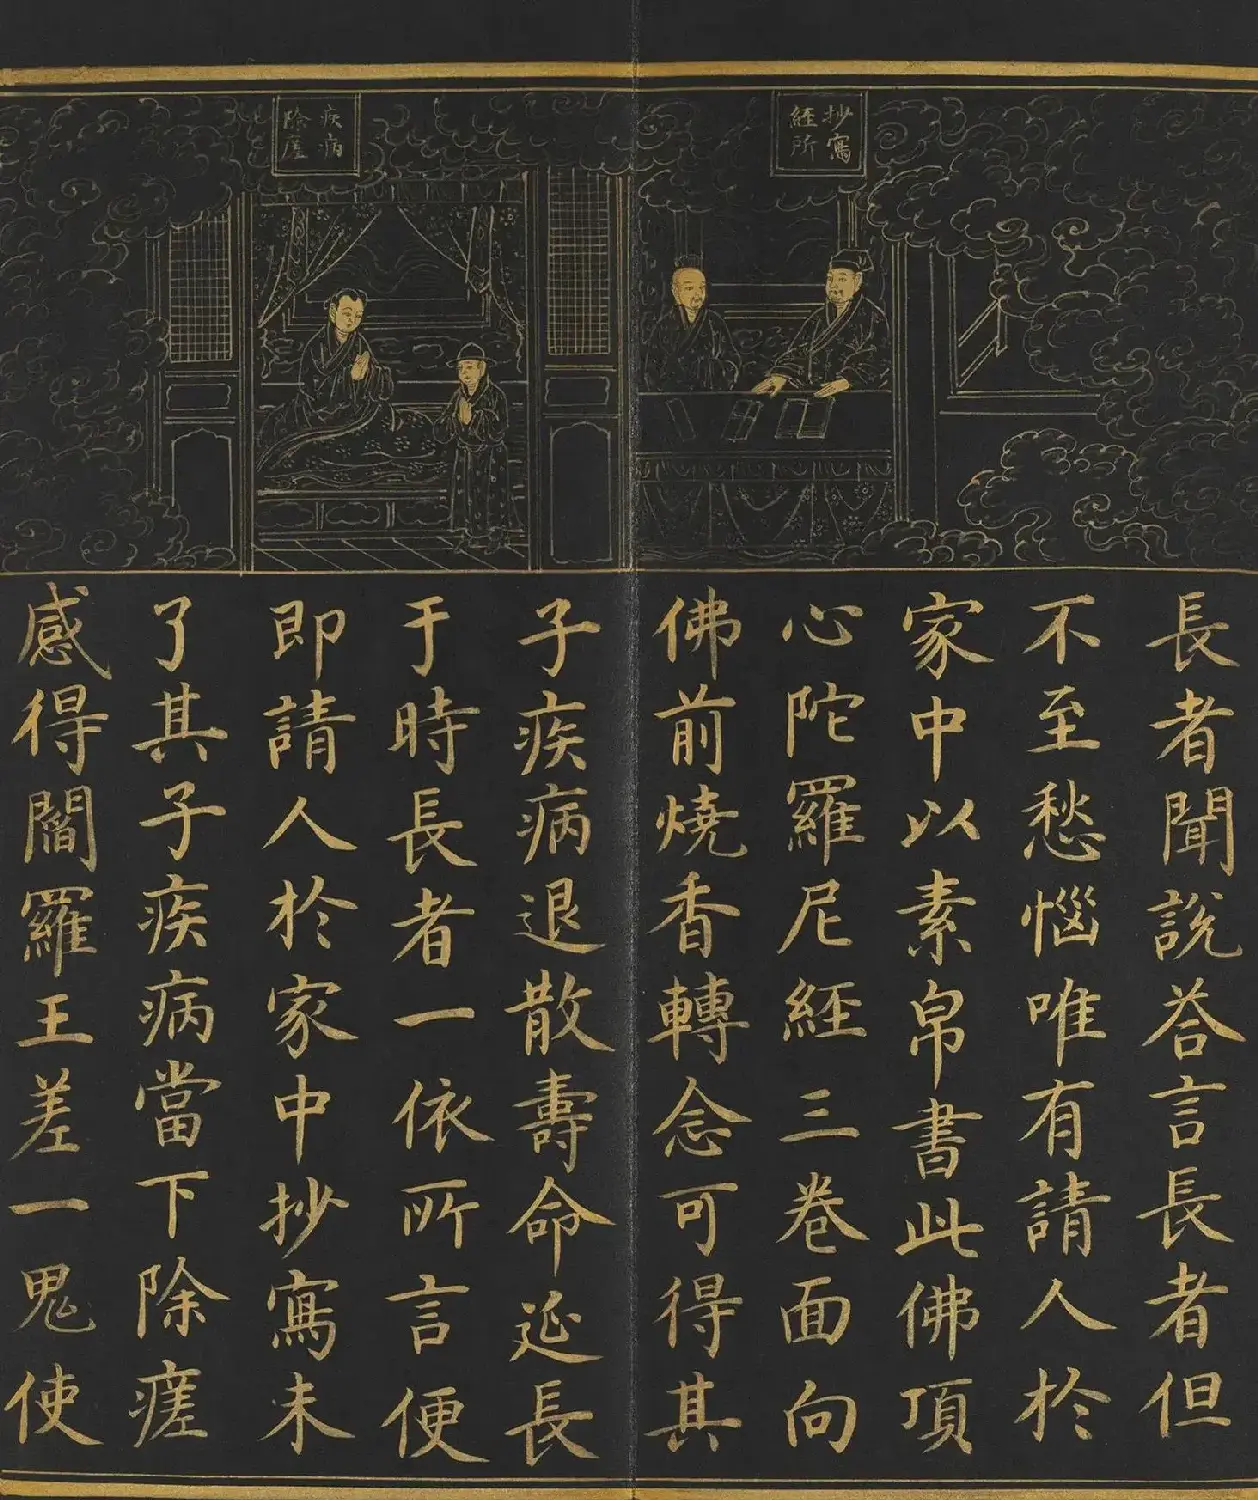 抄寫
經所
疾病
除瘥
長者聞說荅言長者但
不至愁惱唯有請人於
家中以素帛書此佛頂
心陀羅尼經三卷面向
佛前燒香轉念可得其
子疾病退散壽命延長
于時長者一依所言便
即請人於家中抄寫未
了其子疾病當下除瘥
感得閻羅王差一鬼使